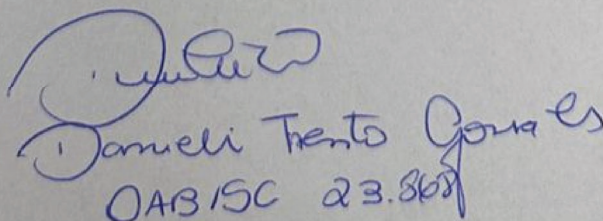 Danieli Trento Gonsales
OAB/SC 23.868